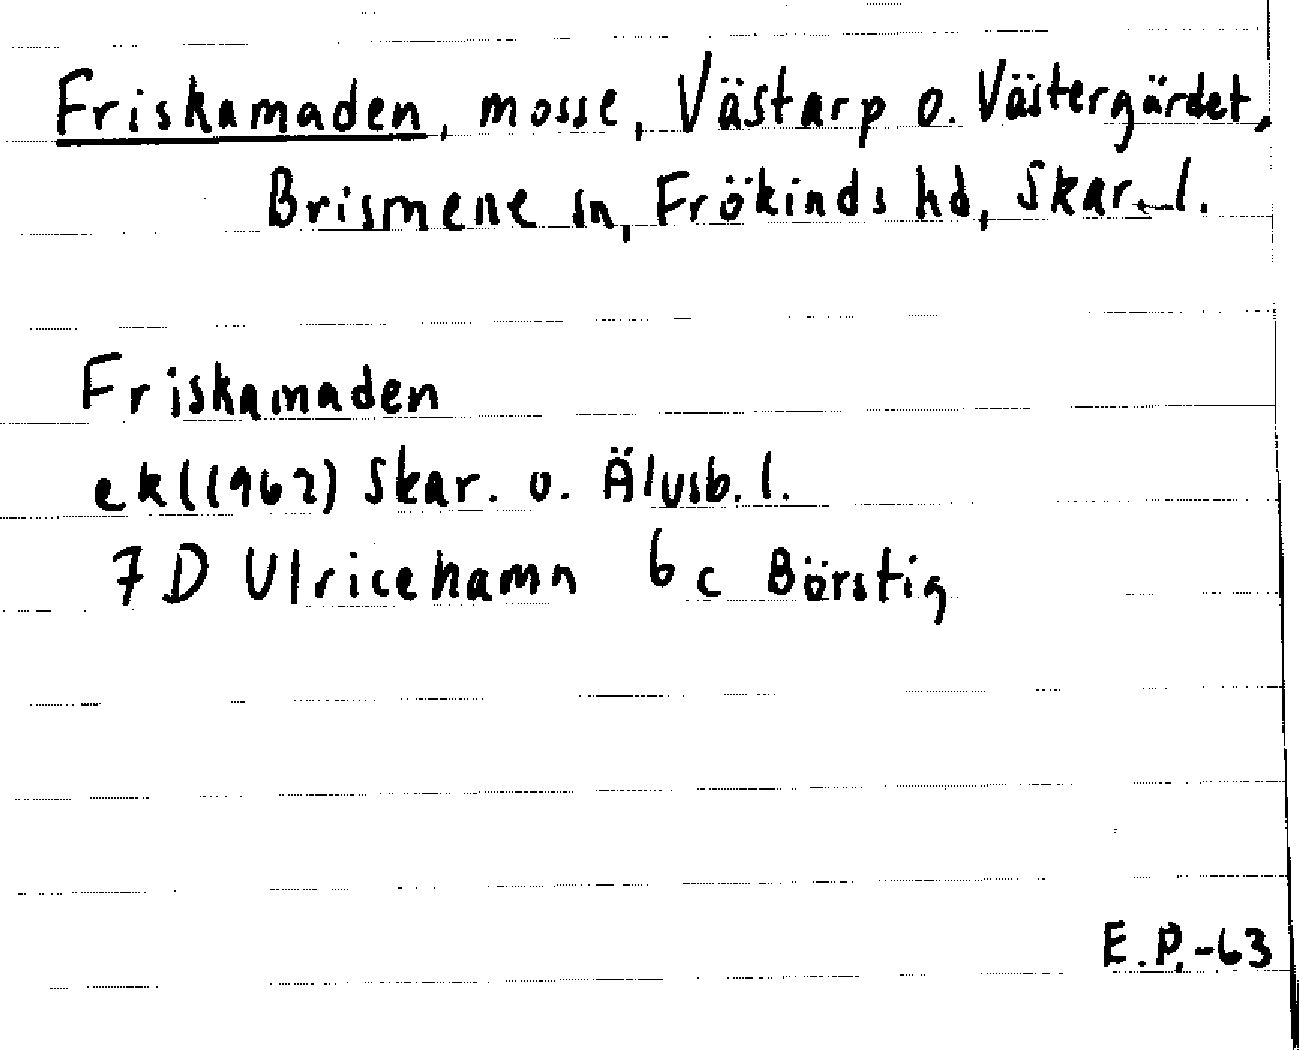 Friskamaden, mosse, Västarp o. Västergärdet,
Brismene sn, Frökinds hd, Skar. l.
Friskamaden
ek (1962) Skar. o. Älvsb. l.
7 D Ulricehamn 6 c Börstig
E.P.-63